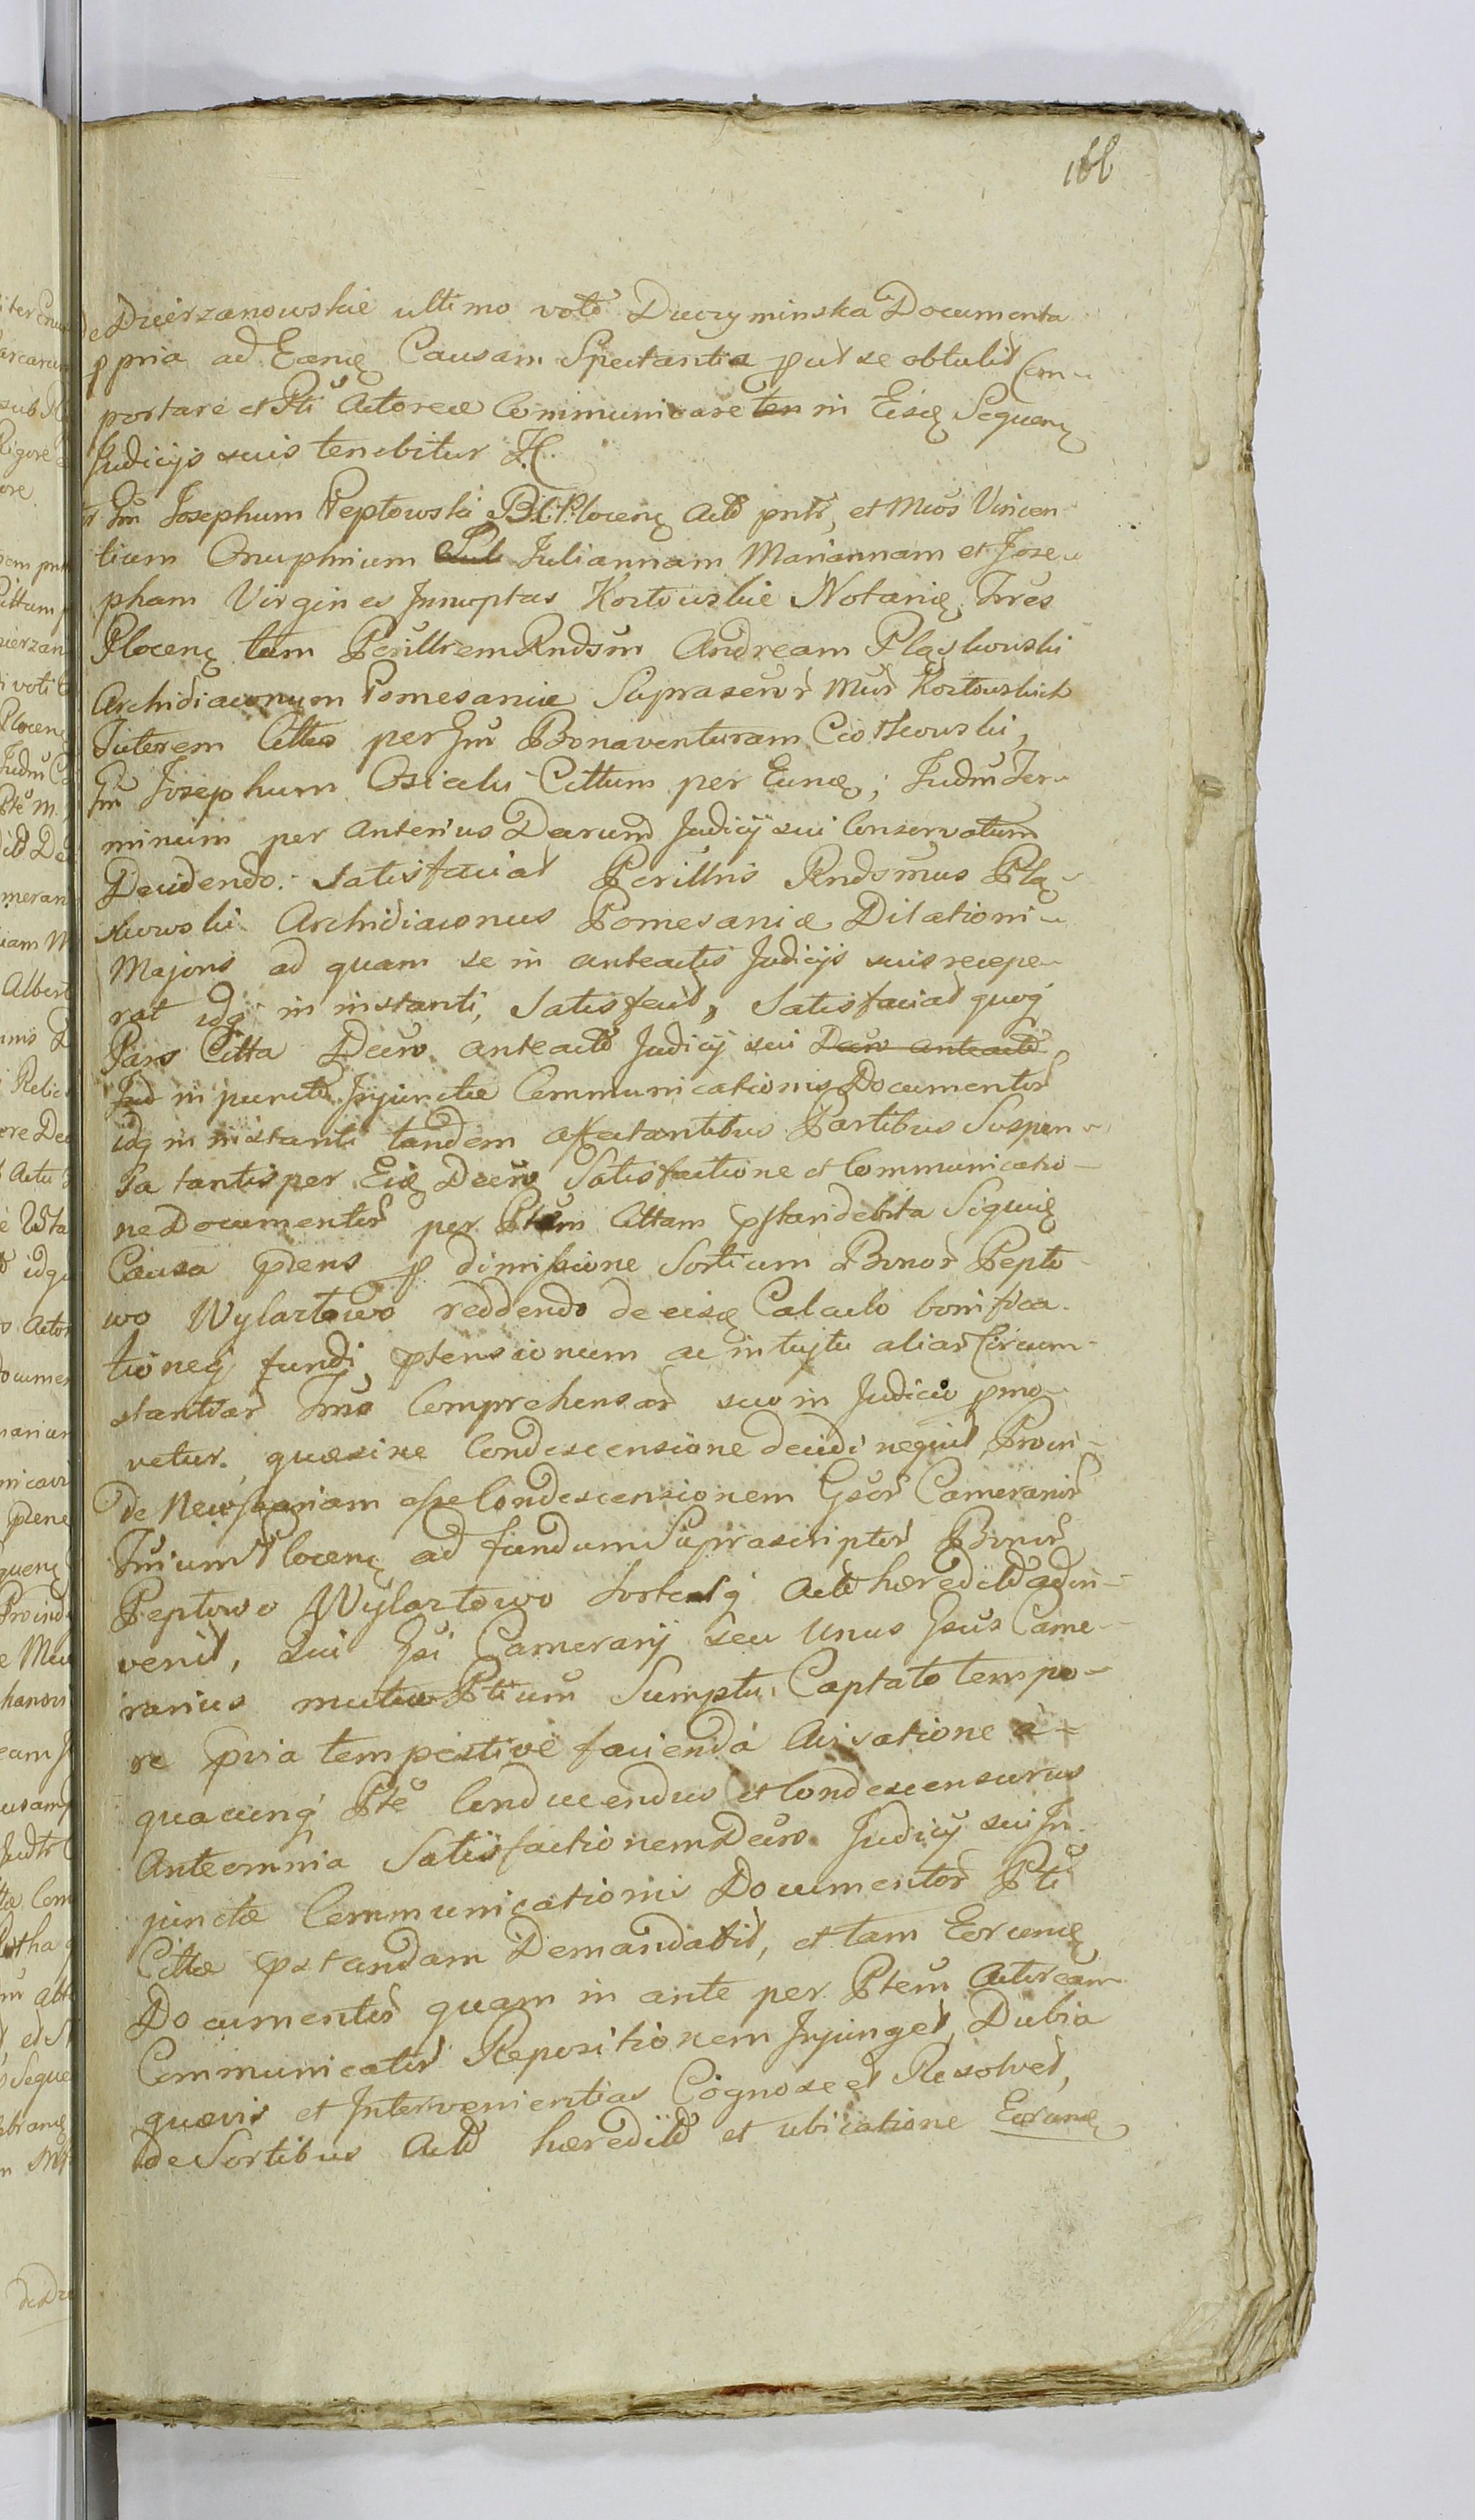 166
de Dzierzanowskie ultimo voto Duczyminska Documenta
ppria ad Eandę Causam Spectantia put se obtulit Com-
portare et Pti Actoreæ Communicare ten in Eisdę Sequenę
Judicijs suis tenebitur
Josephum Peptowski B. C. Plocenę Actō pntr, et Mcos Vincen
tium Onuphrium Jul Juliannam Mariannam et Jose-
pham Virgines Innuptas Kozłowskie Notarię Trres
Plocenę tum Perillrem Rndsm̄ Andream Pląskowski
Archidiaconum Pomesaniæ Suprascr̄ Mcor Kozłowskich
Tutorem Cittos per Gm̄ Bonaventuram Ciołkowski,
Gm̄ Josephum Osiecki Cittum per Eundę; Judm̄ Ter-
minum per anterius Decrum Judicij sui Conservatum
Decidendo. Satisfaciat Perillris Rndsmus Plą-
skowski Archidiaconus Pomesaniæ Dilationi
Majori ad quam se in anteactis Judicijs suis recepe-
rat idq in instanti, Satisfecit, Satisfaciat quoq
Pars Citta Decro anteactō Judicij sui Decro anteactō
Jud in puncto Injunctæ Communicationis Documentor
idq in instanti tandem affectantibus Partibus Suspen-
sa tantisper Eidę Decro Satisfactione et Communicatio-
ne Documentor per Ptem Cittam pstari debita Siquidę
Causa pzens p dimissione Sortium Bonor Pepto
wo Wylazłowo reddendo de eisdę Calculo bonifica-
tioneq fundi, ptensionum ac intuitu aliar Circum-
stantiar Trmō Comprehensar suo in Judicio pmo-
vetur, quæ sine Condescensione decidi nequit Proin-
de Necessariam esse Condescensionem Gsor Camerarior
Trrium Plocenę ad fundum Suprascriptor Bonor
Peptowo Wylazłowo Sortesq Actō hæreditō adin-
venit, Qui Gsi Camerarij seu Unus Gsus Came-
rarius mutuo Ptium Sumptu, Captato tempo-
re pvia tempestive facienda Avisatione a
quacunq Pte Conducendus et Condescensurus
Ante omnia Satisfactionem Decro Judicij sui In-
junctæ Communicationis Documentor Pti
Cittæ pstandam Demandabit, et tam Eorundę
Documentor quam in ante per Ptem Actoream
Communicator Repositionem Injunget, Dubia
quævis et Intervenientias Cognoscet Resolvet,
de Sortibus Actō hæreditō et ubicatione Eorundę